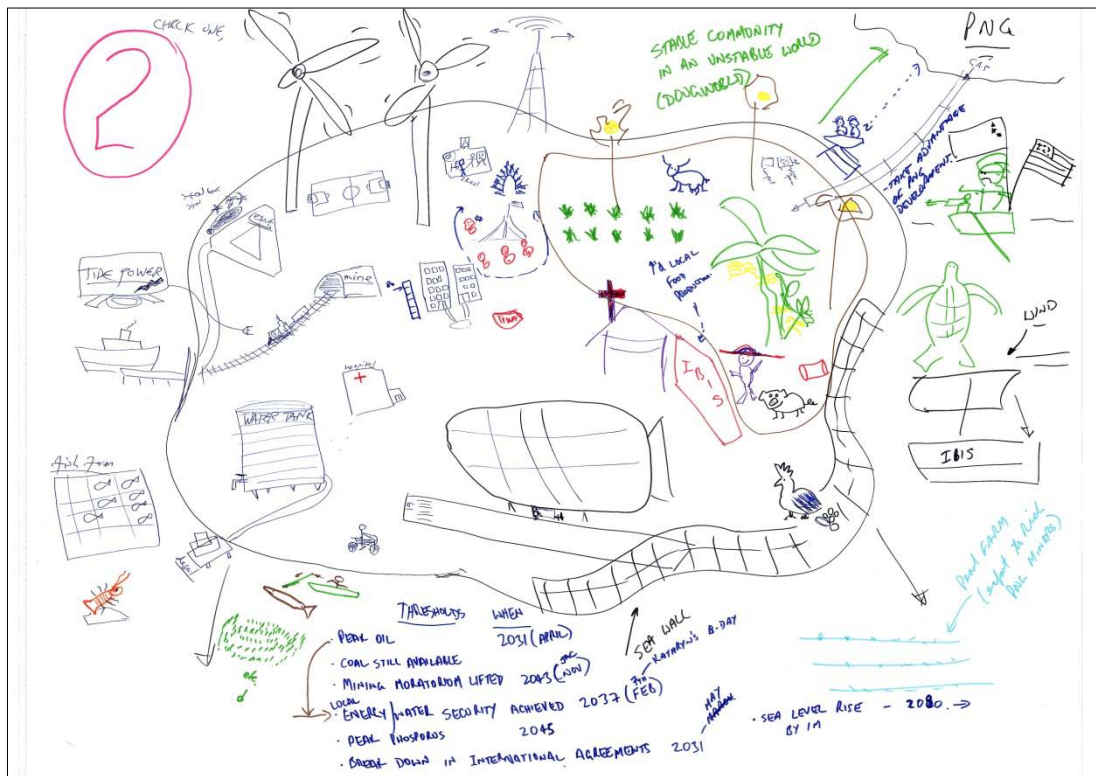 CHECK ONE,
2
STABLE COMMUNITY
IN AN UNSTABLE WORLD
(DOUGWORLD)
PNG
- TAKE ADVANTAGE
OF PNG
DEVELOPMENT.
TIDE POWER
mine
hospital
WATER TANK
Fish Farm
LOCAL
FOOD
PRODUCTION.
IBIS
WIND
IBIS
Pearl FARM
(export to Rich
PNG MINERS)
SEA WALL
THRESHOLDS WHEN
· PEAK OIL 2031 (APRIL)
· COAL STILL AVAILABLE
· MINING MORATORIUM LIFTED 2043 (NOV)
LOCAL
· ENERGY / WATER SECURITY ACHIEVED 2037 (7TH FEB) KATHRYN'S B-DAY
· PEAK PHOSPOROS 2045
· BREAK DOWN IN INTERNATIONAL AGREEMENTS 2031 MAY
· SEA LEVEL RISE - 2080 →
BY 1M